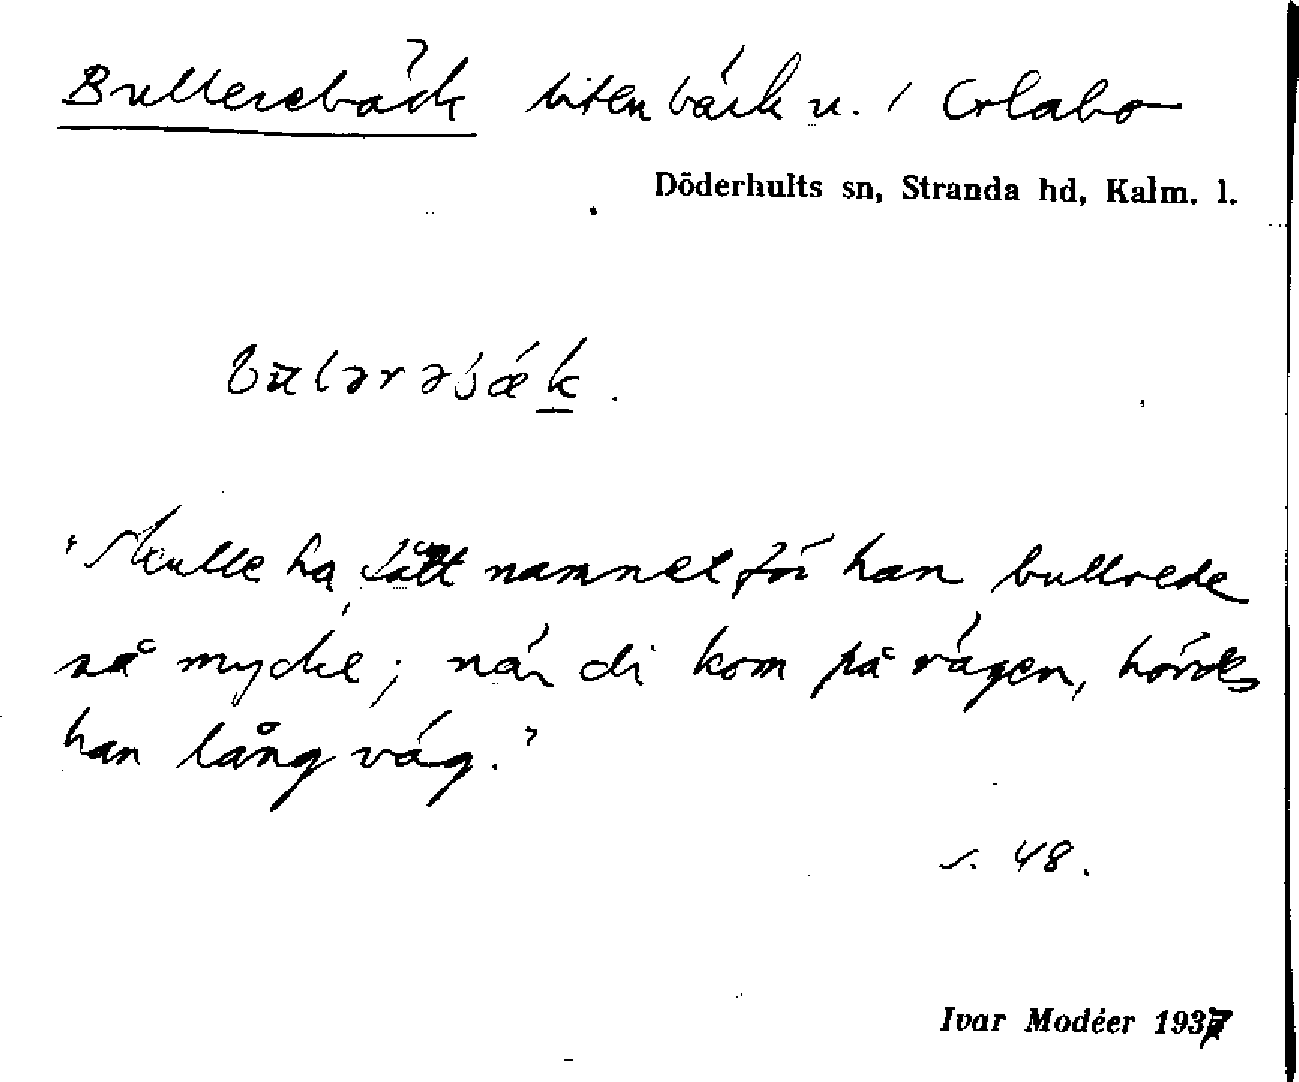 Bullerebäck liten bäck u. / Crlabo
Döderhults sn, Stranda hd, Kalm. l.
bulərəbæk.
"Skulle ha fått namnet för han bullrede
så mycke; när di kom på vägen, hördes
han lång väg."
s. 48.
Ivar Modéer 1937